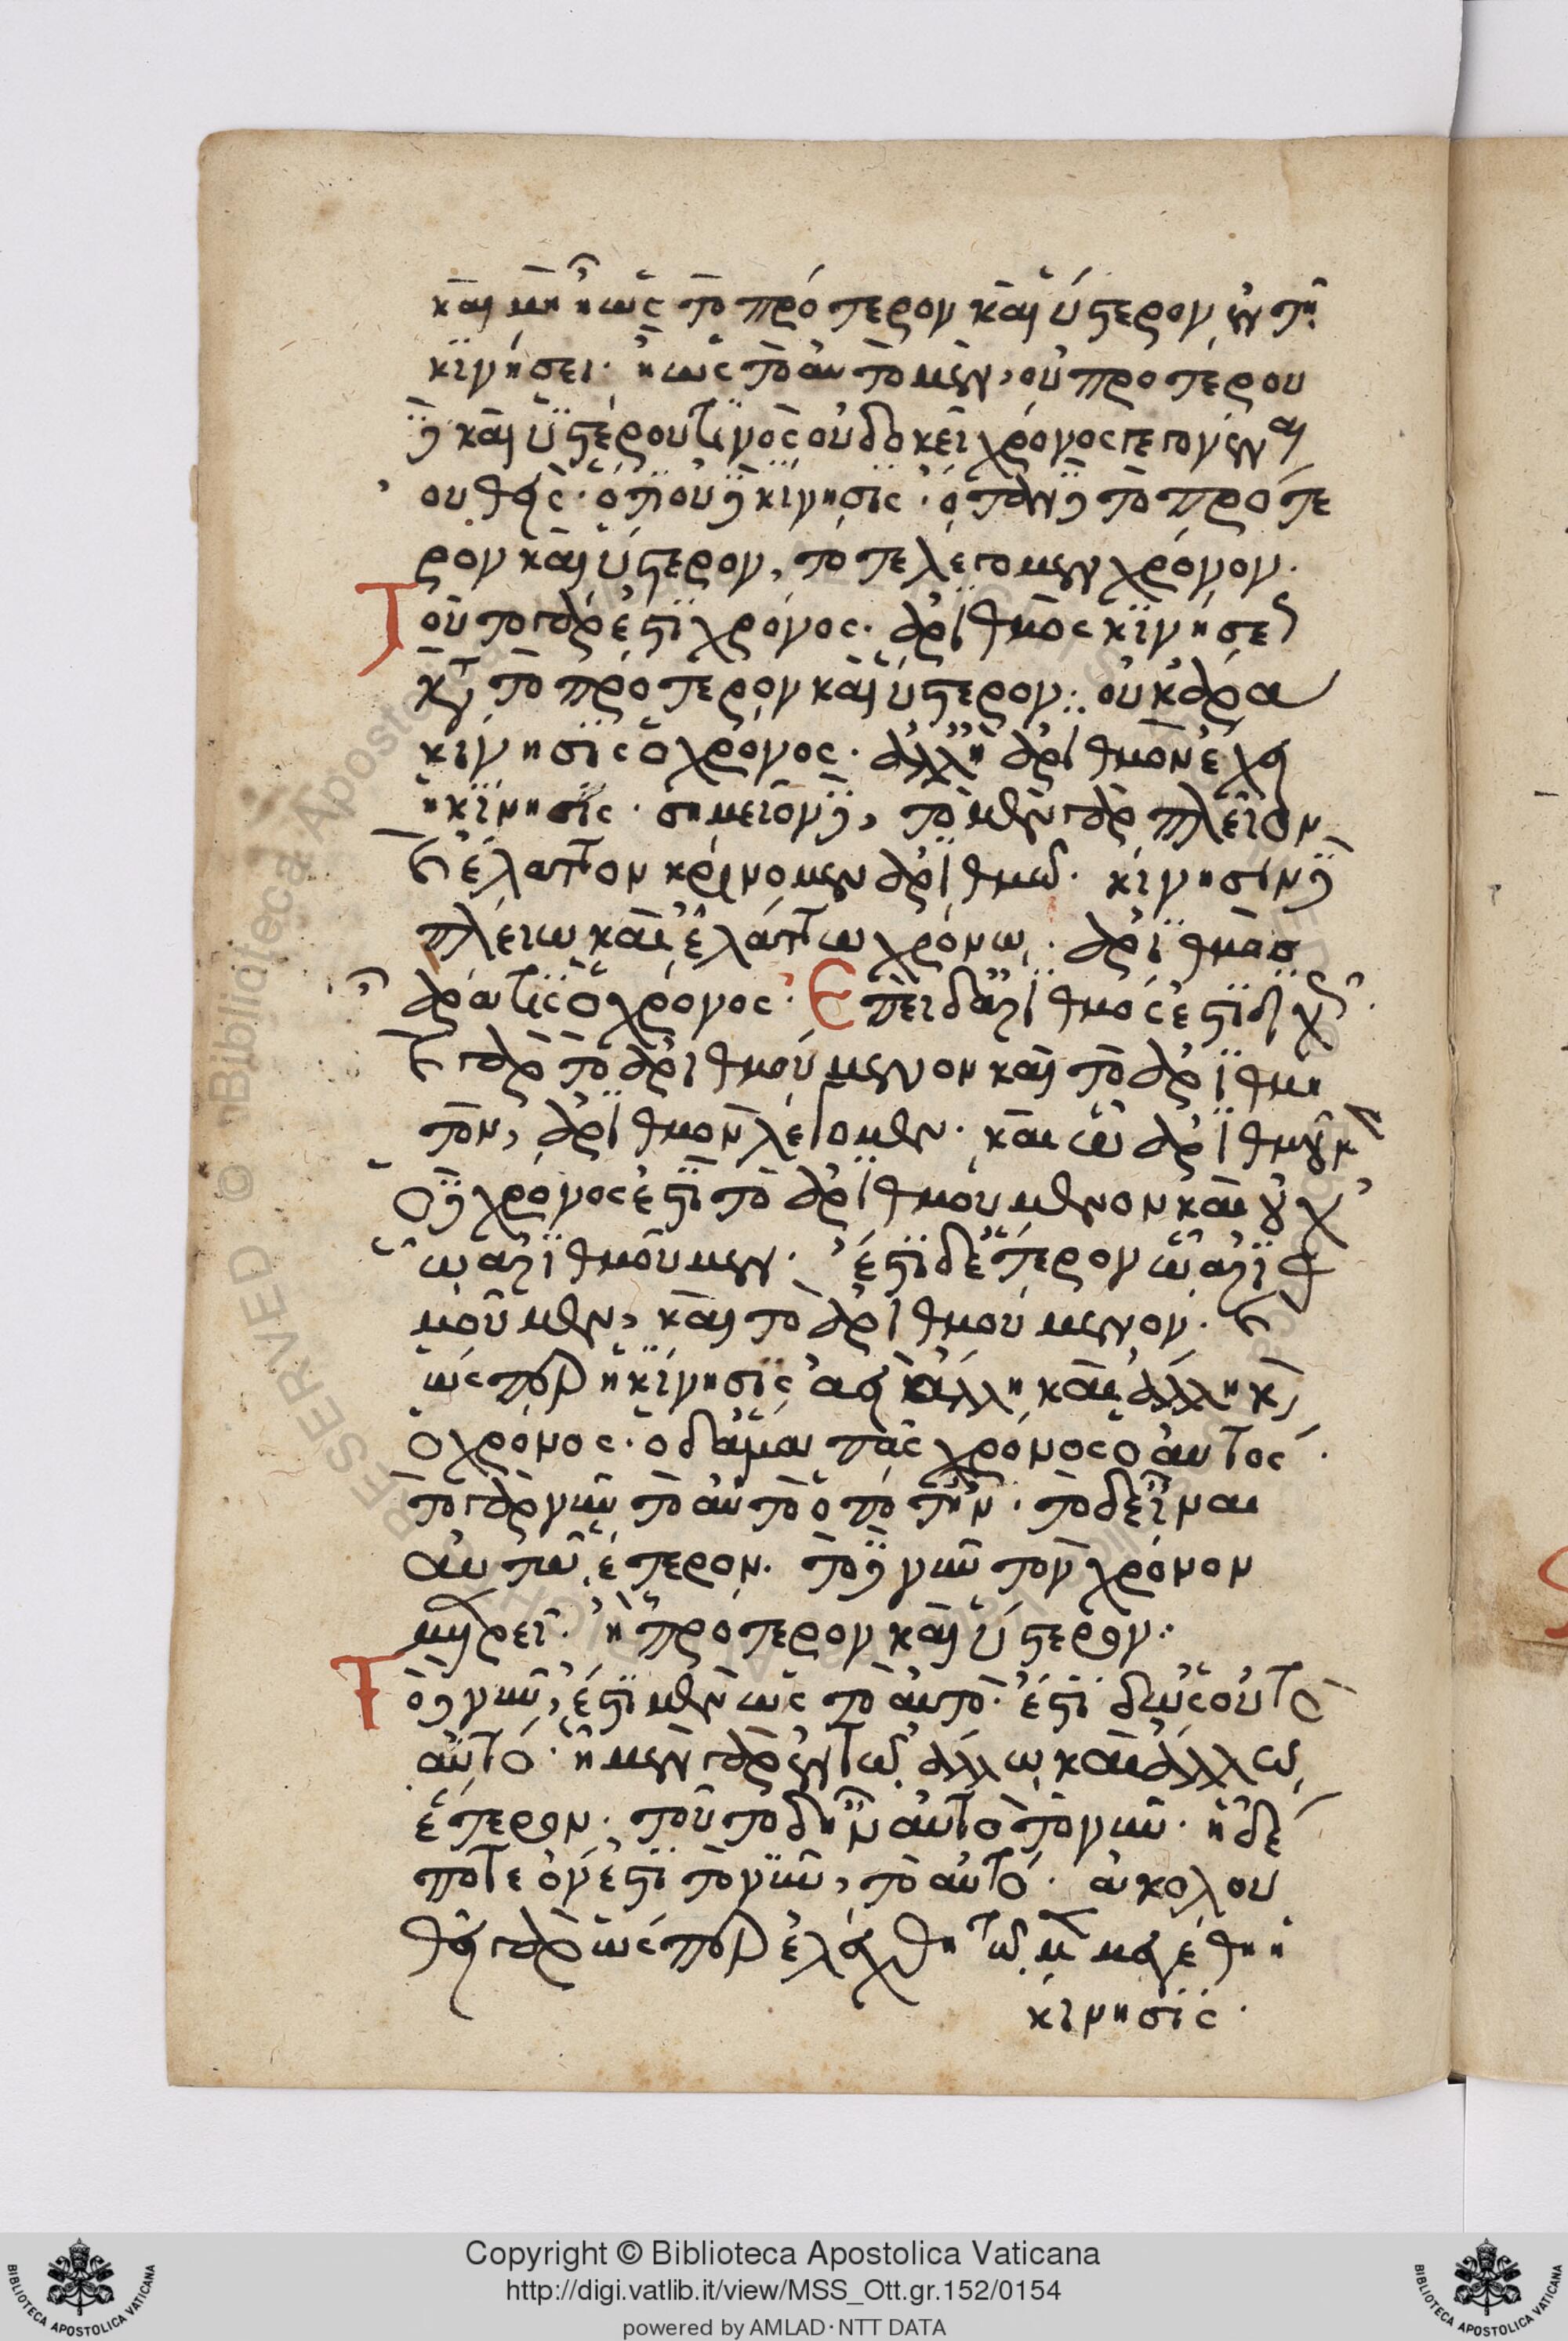 καὶ μὴ ἤ ὡς τὸ πρότερον καὶ ὕστερον ἐν τῆ
κινήσει· ἢ ὡς τὸ αὐτὸ μὲν, οὐ προτέρου
δὲ καὶ ὑστέρου τινὸς οὐ δοκεῖ χρόνος γεγονέναι
οὐθείς· ὅτι οὐδὲ κίνησις· ὅταν δὲ τὸ πρότε
ρον καὶ ὕστερον, τότε λέγομεν χρόνον.
Τοῦτο γάρ ἐστι χρόνος· ἀριθμὸς κινήσεως
κατὰ τὸ πρότερον καὶ ὕστερον: οὐκ ἄρα
κίνησις ὁ χρόνος· ἀλλ' ἢ ἀριθμὸν ἔχει
ἡ κίνησις· σημεῖον δὲ, τὸ μὲν γὰρ πλεῖον
καὶ ἔλαττον κρίνομεν ἀριθμῶ· κίνησιν δὲ
πλείω καὶ ἐλάττω χρόνω· ἀριθμὸσ
ἄρα τὶς ὁ χρόνος· Ἐπεὶ δ' ἀριθμός ἐστι διχῶς·
καὶ γὰρ τὸ ἀριθμούμενον καὶ τὸ ἀριθμη
τὸν, ἀριθμὸν λέγομεν· καὶ ὧ ἀριθμοῦμεν
ὁ δὲ χρόνος ἐστὶ τὸ ἀριθμούμενον καὶ οὐχ
ὧ ἀριθμοῦμεν· ἔστι δ' ἕτερον ὧ ἀριθ
μοῦμεν, καὶ τὸ ἀριθμούμενον. καὶ
ὥσπερ ἡ κίνησις ἀεὶ ἄλλη καὶ ἄλλη καὶ
ὁ χρόνος· ὁ δ' ἅμα πᾶς χρόνος ὁ αὐτός.
τὸ γὰρ νῦν τὸ αὐτὸ ὅ ποτ' ἦν· τὸ δ' εἶναι
αὐτῶ ἕτερον· τὸ δὲ νῦν τὸν χρόνον
μετρεῖ· ἧ πρότερον καὶ ὕστερον:
Τὸ δὲ νῦν, ἔστι μὲν ὡς τὸ αὐτὸ· ἔστι δ' ὡς οὐ τὸ
αὐτό· ἧ μὲν γὰρ ἐν τῶ ἄλλω καὶ ἄλλω,
ἕτερον· τοῦτο δ' ἦν αὐτὸ τὸ νῦν· ἧ δέ
ποτε ὄν ἐστι τὸ νῦν, τὸ αὐτό· ἀκολου
θεῖ γὰρ ὥσπερ ἐλέχθη τῶ μὲν μεγέθει ἡ
κίνησις·